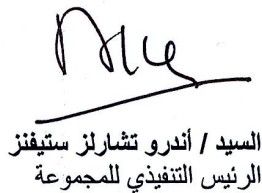 السيد / أندرو تشارلز ستيفنز
الرئيس التنفيذي للمجموعة